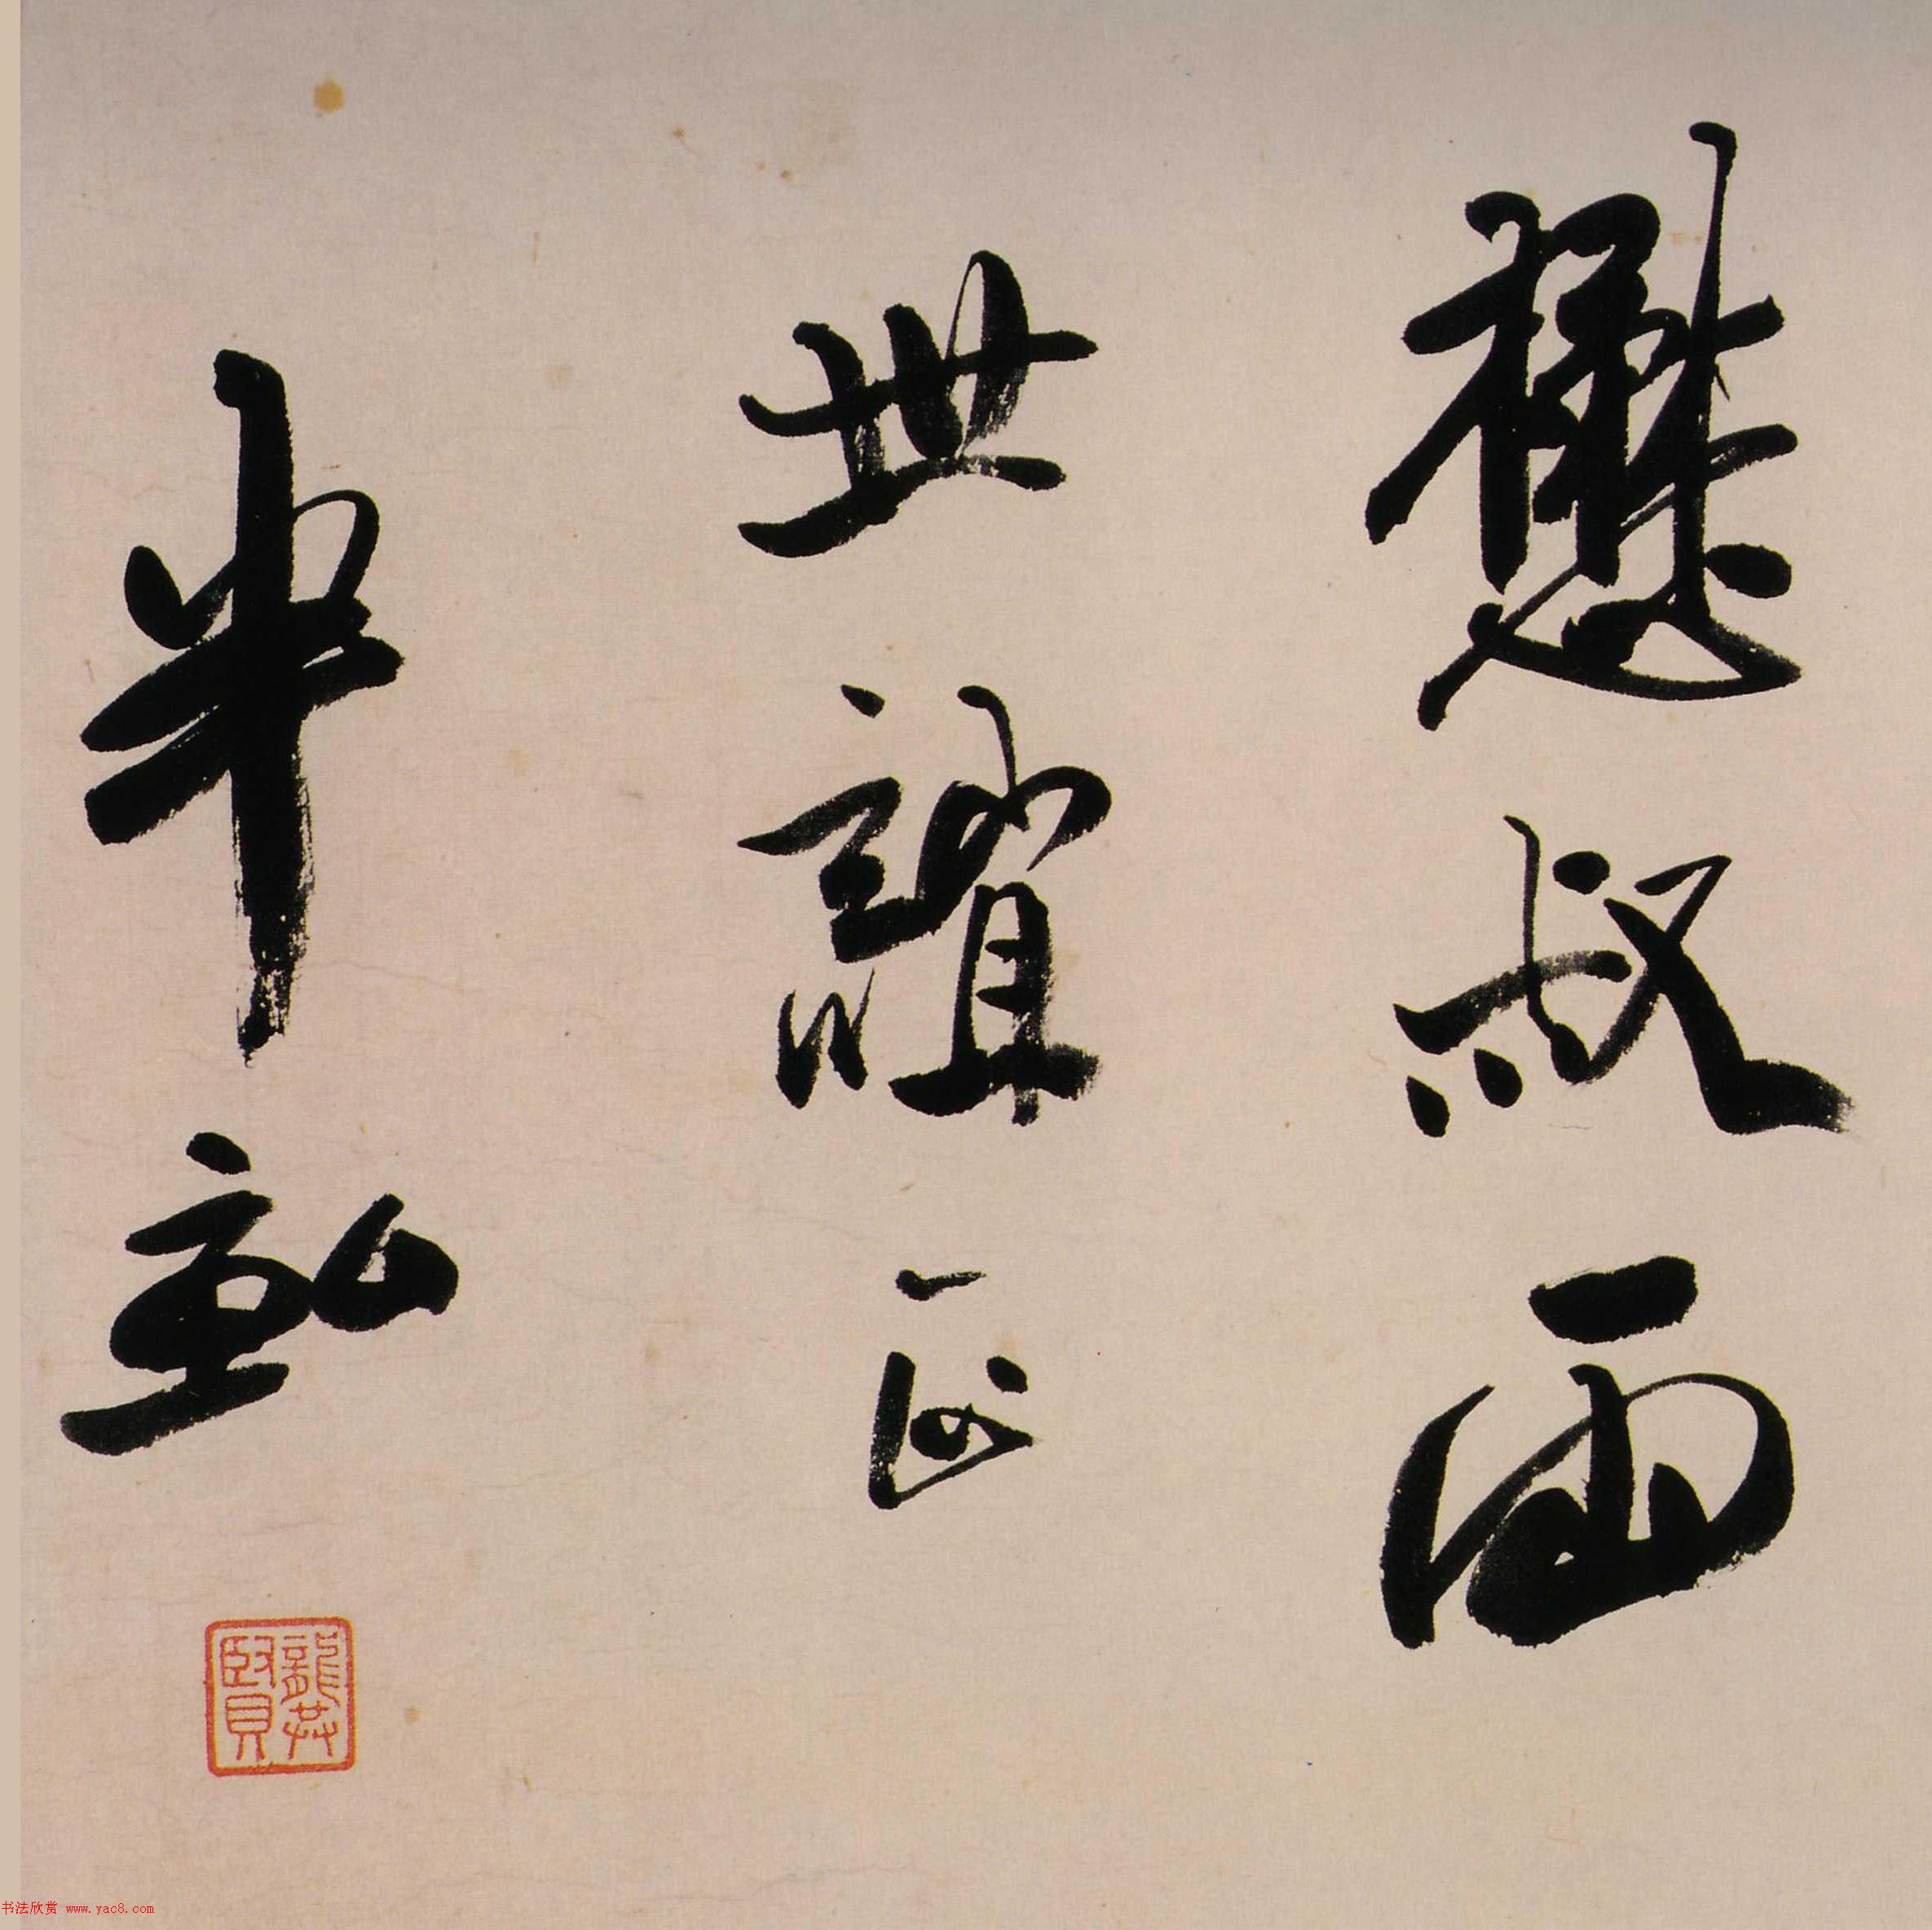 懋叔兩
世誼正
半畝
龔賢
书法欣赏 www.yac8.com